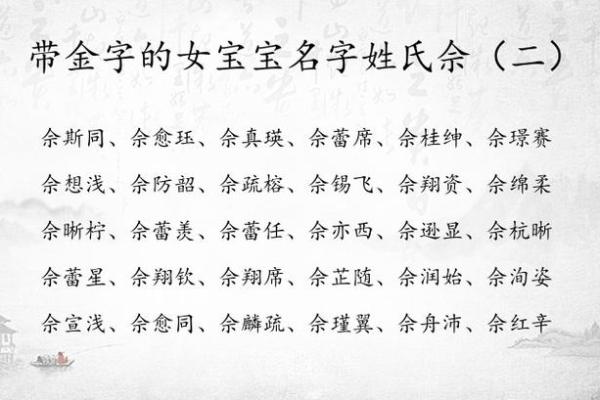 带金字的女宝宝名字姓氏佘（二）
佘斯同、佘愈珏、佘真瑛、佘蕾席、佘桂绅、佘璟赛
佘想浅、佘防韶、佘疏榕、佘锡飞、佘翔资、佘绵柔
佘晰柠、佘蕾羡、佘蕾任、佘亦西、佘逊显、佘杭晰
佘蕾星、佘翔钦、佘翔席、佘芷随、佘润始、佘洵姿
佘宣浅、佘愈同、佘麟疏、佘瑾翼、佘舟沛、佘红辛